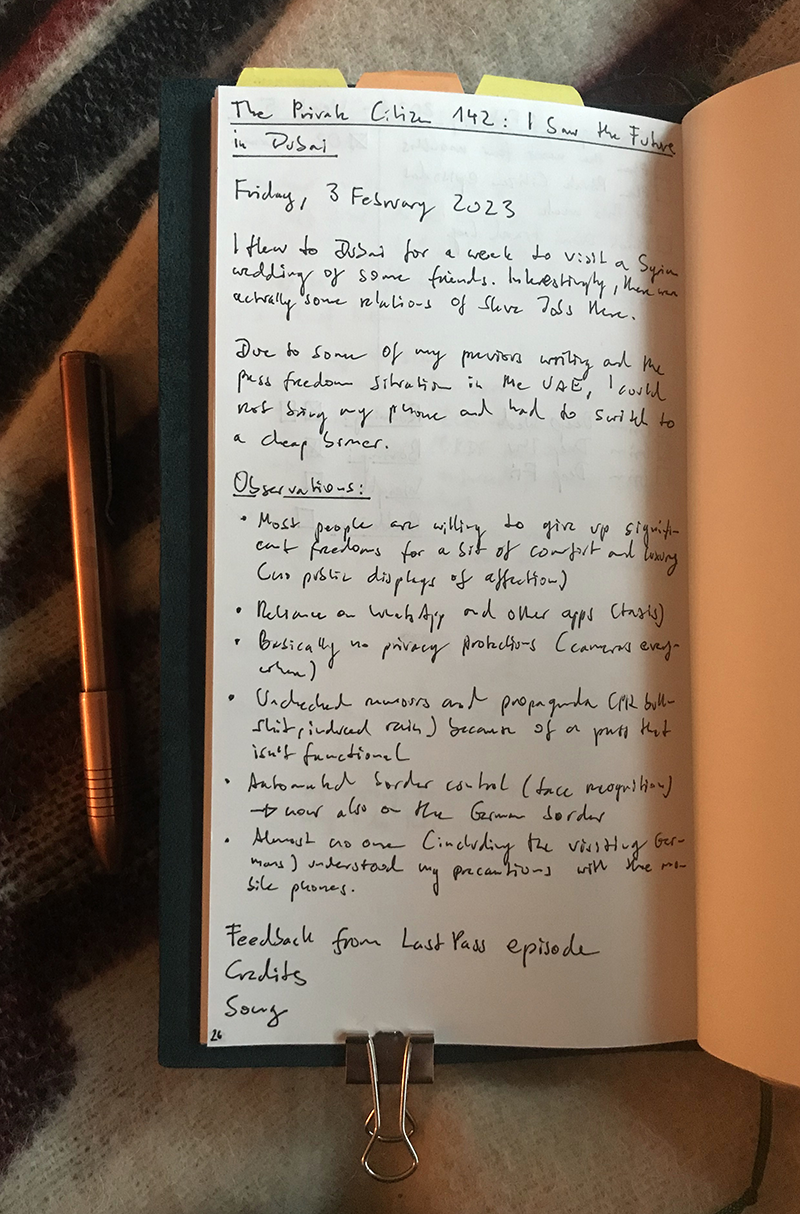 The Private Citizen 142: I Saw the Future
in Dubai
Friday, 3 February 2023
I flew to Dubai for a week to visit a Syrian
wedding of some friends. Interestingly, there were
actually some relations of Steve Jobs there.
Due to some of my previous writing and the
press freedom situation in the UAE, I could
not bring my phone and had to switch to
a cheap burner.
Observations:
• Most people are willing to give up signifi-
cant freedoms for a bit of comfort and luxury
(no public displays of affection)
• Reliance on WhatsApp and other apps (taxis)
• Basically no privacy protections (cameras every-
where)
• Unchecked rumours and propaganda (PR bull-
shit, induced rain) because of a press that
isn't functional
• Automated border control (face recognition)
→ now also on the German border
• Almost no one (including the visiting Ger-
mans) understood my precautions with the mo-
bile phones.
Feedback from LastPass episode
Credits
Song
26